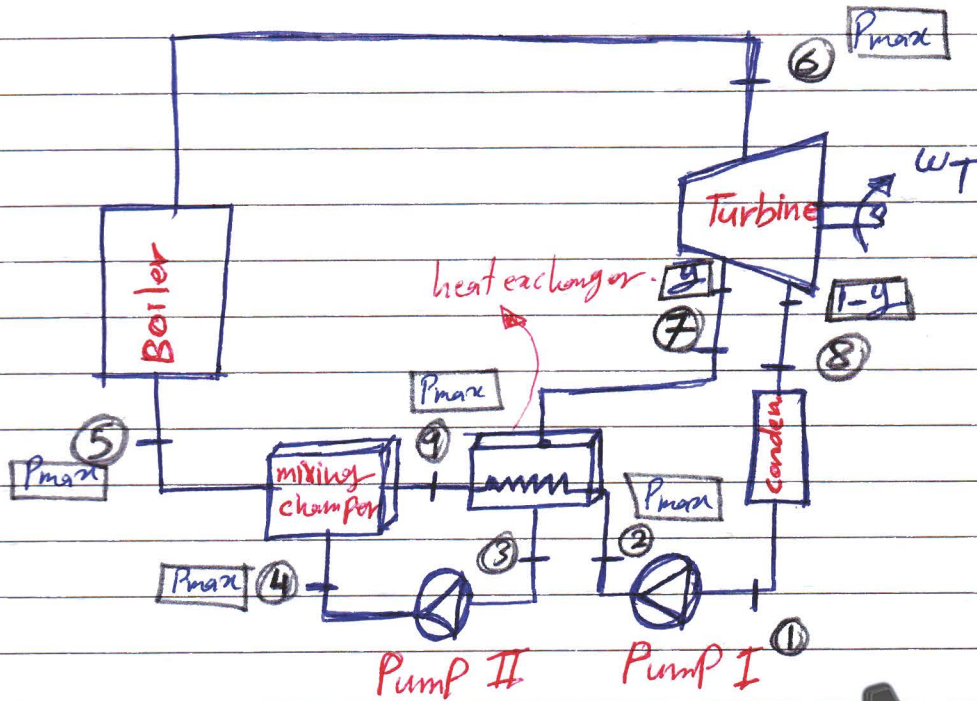 Pmax
6
WT
Turbine
Boiler
heat exchanger.
y
1-y
7
8
Pmax
9
5
Pmax
mixing
champer
Pmax
conden
3
2
Pmax
4
1
Pump II
Pump I